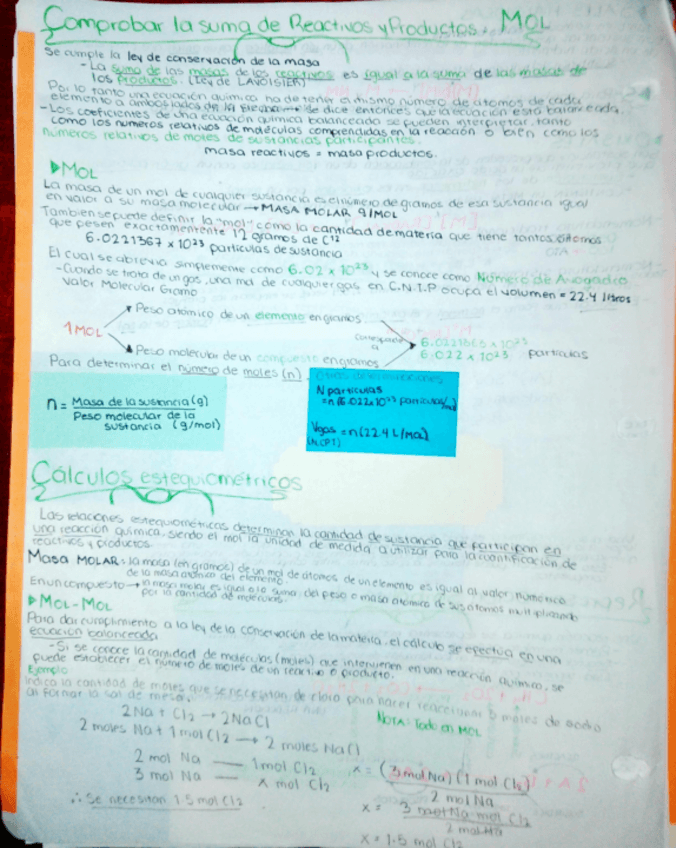 Comprobar la suma de Reactivos y Productos. MOL
Se cumple la ley de conservación de la masa
- La suma de las masas de los reactivos es igual a la suma de las masas de
los productos. (Ley de LAVOISIER)
Por lo tanto una ecuación química ha de tener el mismo número de átomos de cada
elemento a ambos lados de la flecha → Se dice entonces que la ecuación está balanceada.
- Los coeficientes de una ecuación química balanceada se pueden interpretar, tanto
como los números relativos de moléculas comprendidas en la reacción o bien como los
números relativos de moles de sustancias participantes.
masa reactivos = masa productos.
▶ MOL
La masa de un mol de cualquier sustancia es el número de gramos de esa sustancia igual
en valor a su masa molecular → MASA MOLAR g/MOL
También se puede definir la "mol" como la cantidad de materia que tiene tantos átomos
que pesen exactamente 12 gramos de C12
6.0221367 x 10²³ partículas de sustancia
El cual se abrevia simplemente como 6.02 x 10²³ y se conoce como Número de Avogadro
- Cuando se trata de un gas, una mol de cualquier gas en C.N.T.P ocupa el volumen = 22.4 litros
Valor Molecular Gramo
Peso atómico de un elemento en gramos
1 MOL
corresponde
a
6.0221365 x 10²³
6.022 x 10²³ partículas
Peso molecular de un compuesto en gramos
Para determinar el número de moles (n).
n = Masa de la sustancia (g)
Peso molecular de la
sustancia (g/mol)
Otras
N partículas
= n (6.022x10²³ partículas/mol)
Vgas = n (22.4 L/mol)
(NCPT)
Cálculos estequiométricos
Las relaciones estequiométricas determinan la cantidad de sustancia que participan en
una reacción química, siendo el mol la unidad de medida a utilizar para la cuantificación de
reactivos y productos.
Masa MOLAR: la masa (en gramos) de un mol de átomos de un elemento es igual al valor numérico
de la masa atómica del elemento.
En un compuesto → la masa molar es igual a la suma del peso o masa atómica de sus átomos multiplicando
por la cantidad de moléculas.
▶ MOL-MOL
Para dar cumplimiento a la ley de la conservación de la materia, el cálculo se efectúa en una
ecuación balanceada
- Si se conoce la cantidad de moléculas (moles) que intervienen en una reacción química, se
puede establecer el número de moles de un reactivo o producto.
Ejemplo
Indica la cantidad de moles que se necesitan de cloro para hacer reaccionar 3 moles de sodio
al formar la sal de mesa.
2Na + Cl2 → 2NaCl
NOTA: Todo en MOL
2 moles Na + 1 mol Cl2 → 2 moles NaCl
2 mol Na — 1 mol Cl2
3 mol Na — x mol Cl2
x = (3 mol Na) (1 mol Cl2)
2 mol Na
x = 3 mol Na mol Cl2
2 mol Na
x = 1.5 mol Cl2
∴ Se necesitan 1.5 mol Cl2